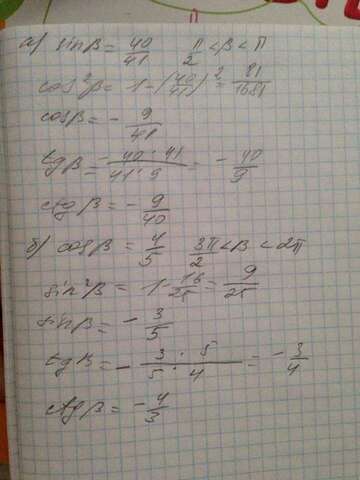 а) sinβ = 40/41 π/2 < β < π
cos²β = 1 - (40/41)² = 81/1681
cosβ = - 9/41
tgβ = - 40 · 41 / 41 · 9 = - 40/9
ctgβ = - 9/40
б) cosβ = 4/5 3π/2 < β < 2π
sin²β = 1 - 16/25 = 9/25
sinβ = - 3/5
tgβ = - 3 · 5 / 5 · 4 = - 3/4
ctgβ = - 4/3